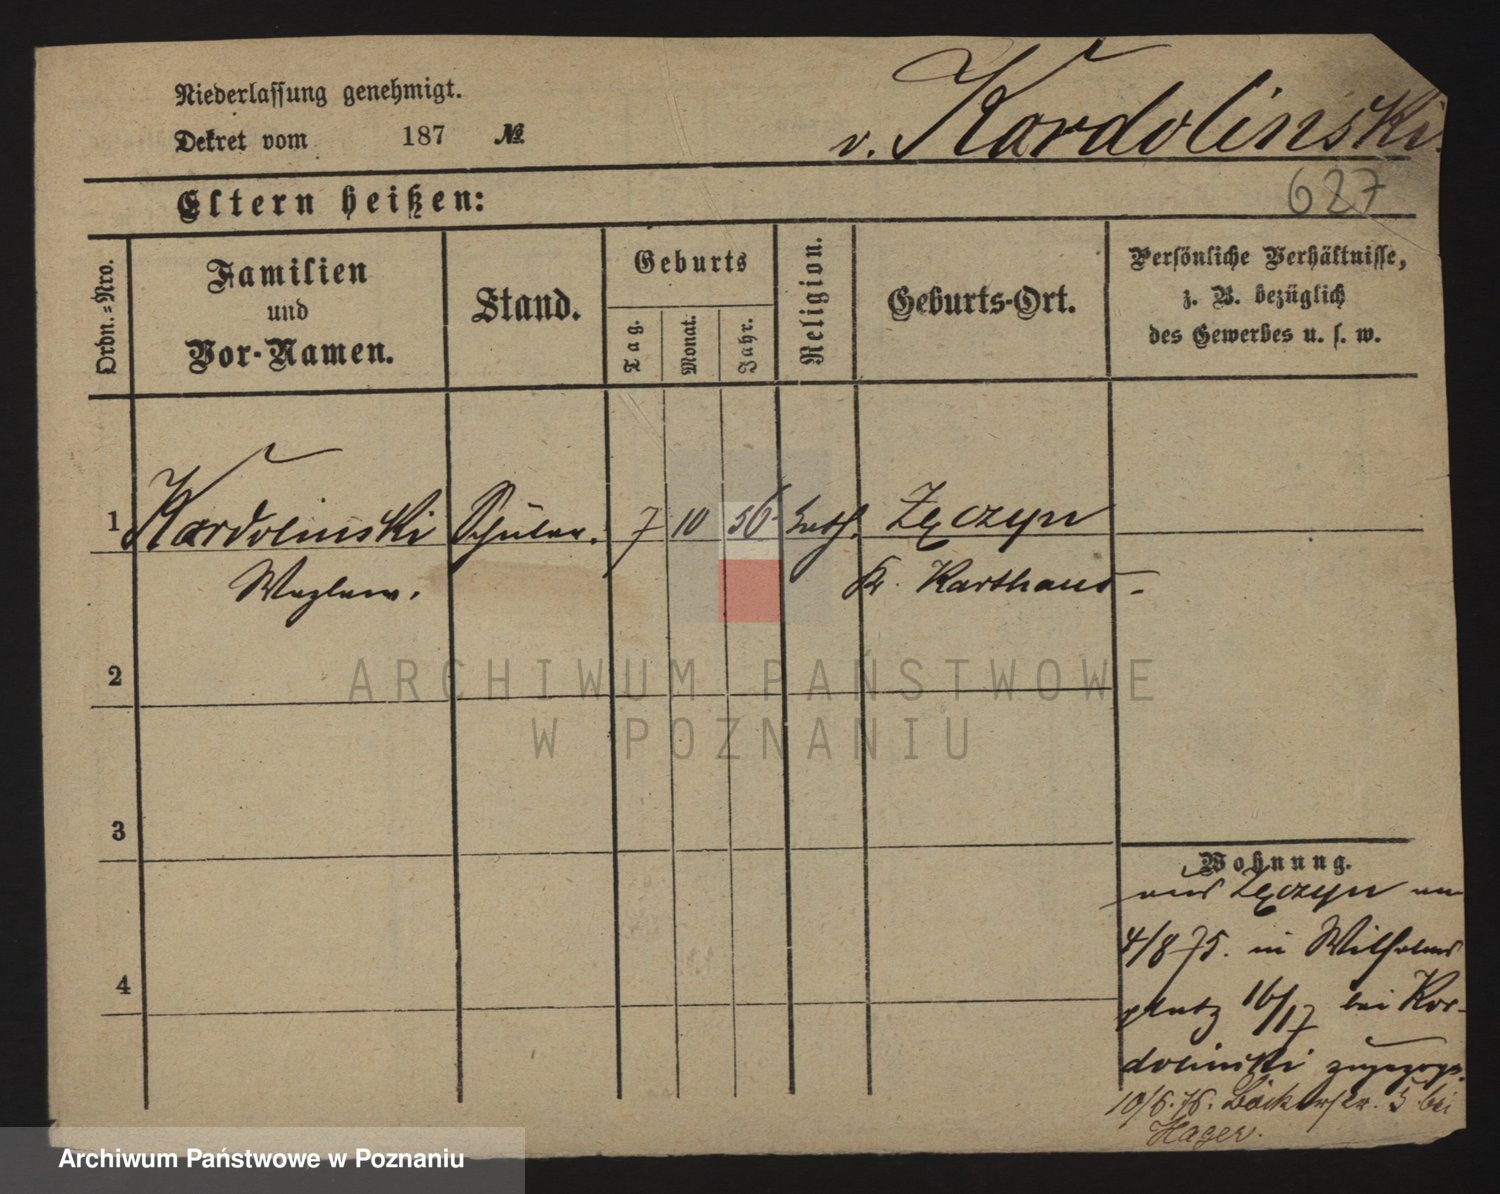 Niederlassung genehmigt.
Dekret vom 187 №
v. Kardolinski.
627
Eltern heißen:
Ordn.-Nro.
Familien
und
Vor-Namen.
Stand.
Geburts
Tag.
Monat.
Jahr.
Religion.
Geburts-Ort.
Persönliche Verhältnisse,
z. B. bezüglich
des Gewerbes u. s. w.
1 Kardolinski Schüler. 7 10 56 kath. Zęczyn
Kr. Karthaus.
2
3
4
Wohnung.
aus Zęczyn am
4/8 75. in Wilhelms
platz 16/17 bei Kar-
dolinski zugezogen.
10/6.76. Bäckerstr. 5 bei
Hager.
ARCHIWUM PAŃSTWOWE
W POZNANIU
Archiwum Państwowe w Poznaniu